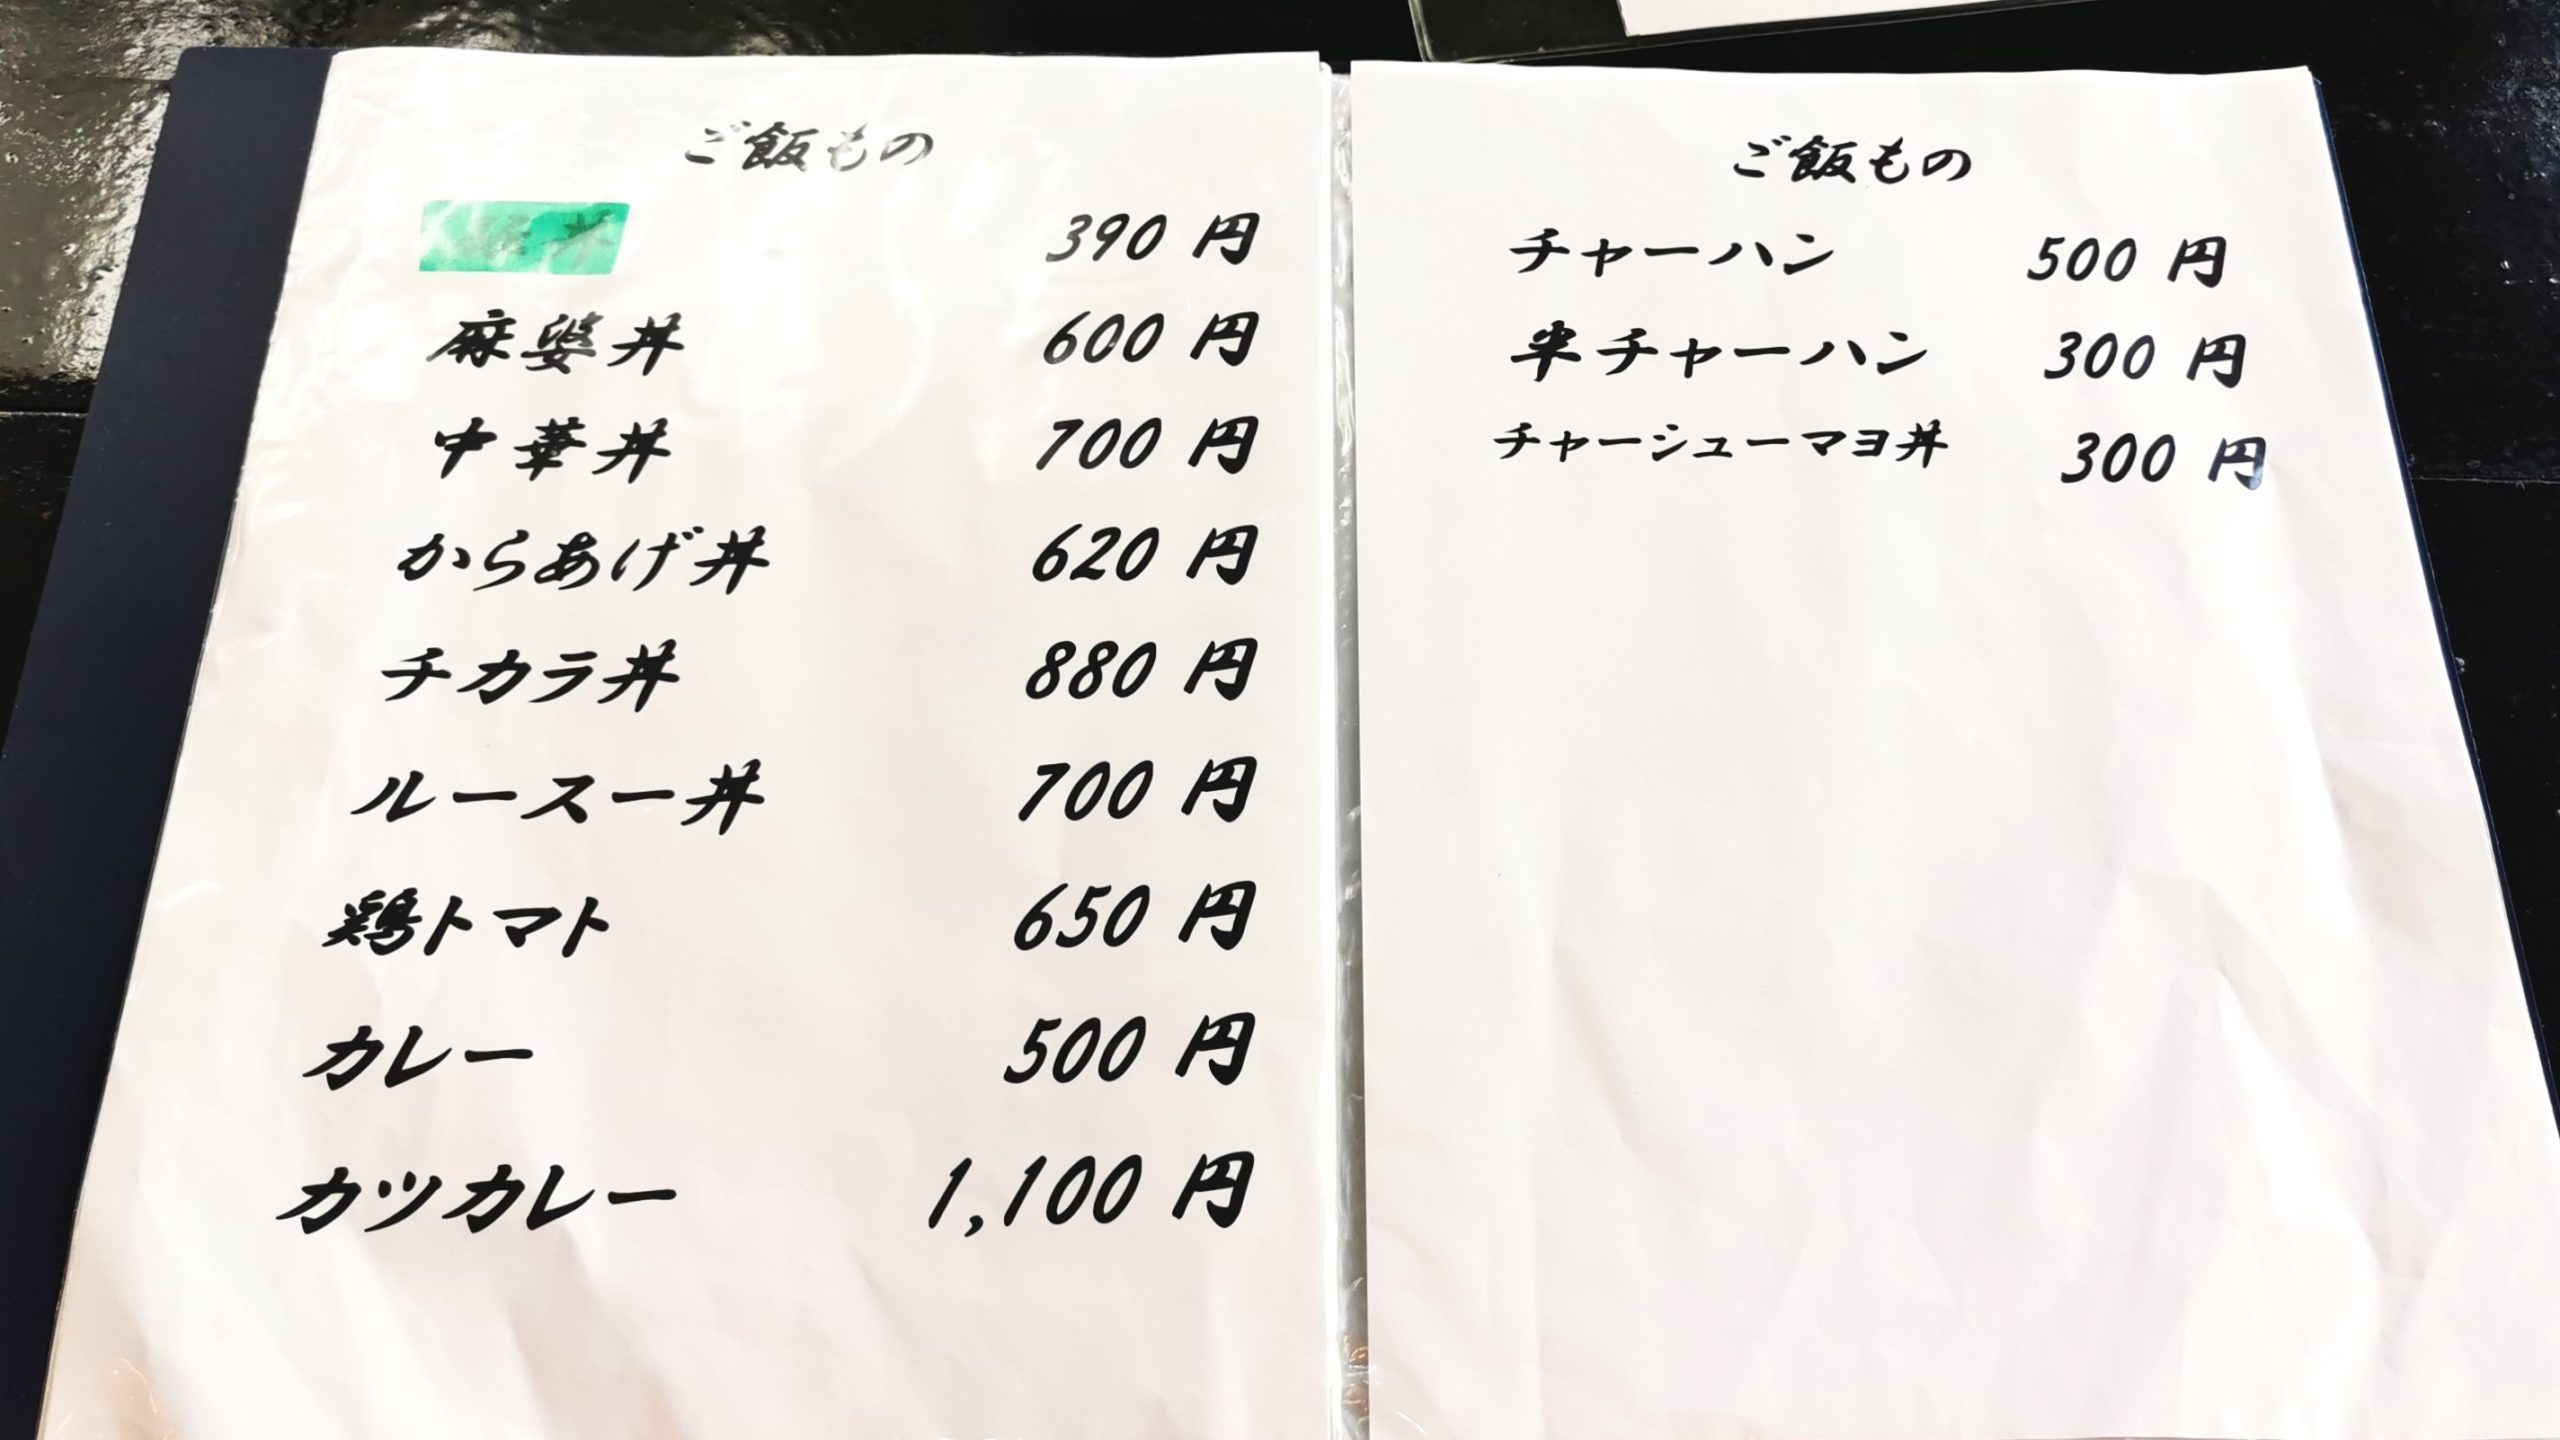 ご飯もの
390 円
麻婆丼 600 円
中華丼 700 円
からあげ丼 620 円
チカラ丼 880 円
ルースー丼 700 円
鶏トマト 650 円
カレー 500 円
カツカレー 1,100 円
ご飯もの
チャーハン 500 円
半チャーハン 300 円
チャーシューマヨ丼 300 円